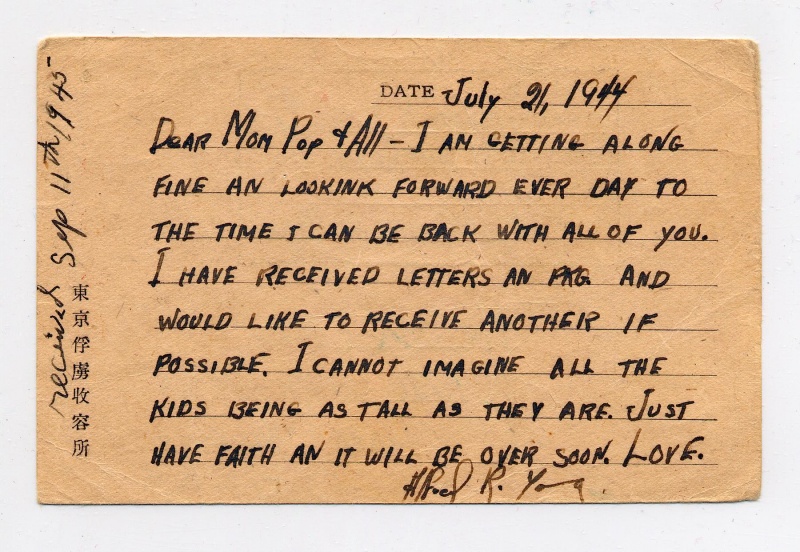 DATE July 21, 1944
DEAR MOM POP & All – I AM GETTING ALONG
FINE AN LOOKINK FORWARD EVER DAY TO
THE TIME I CAN BE BACK WITH ALL OF YOU.
I HAVE RECEIVED LETTERS AN PKG. AND
WOULD LIKE TO RECEIVE ANOTHER IF
POSSIBLE. I CANNOT IMAGINE ALL THE
KIDS BEING AS TALL AS THEY ARE. JUST
HAVE FAITH AN IT WILL BE OVER SOON. LOVE.
Alfred R. Young
received Sep 11th 1945
東京俘虜收容所